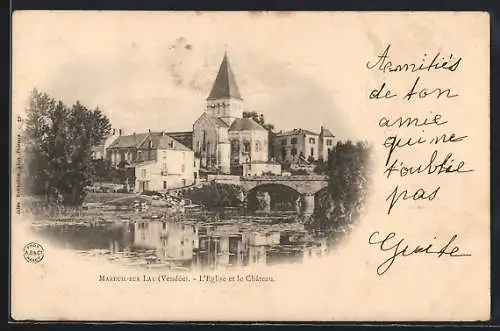 Amitiés
de ton
amie
qui ne
t'oublie
pas
MAREUIL-SUR LAY (Vendée). - L'Eglise et le Château.